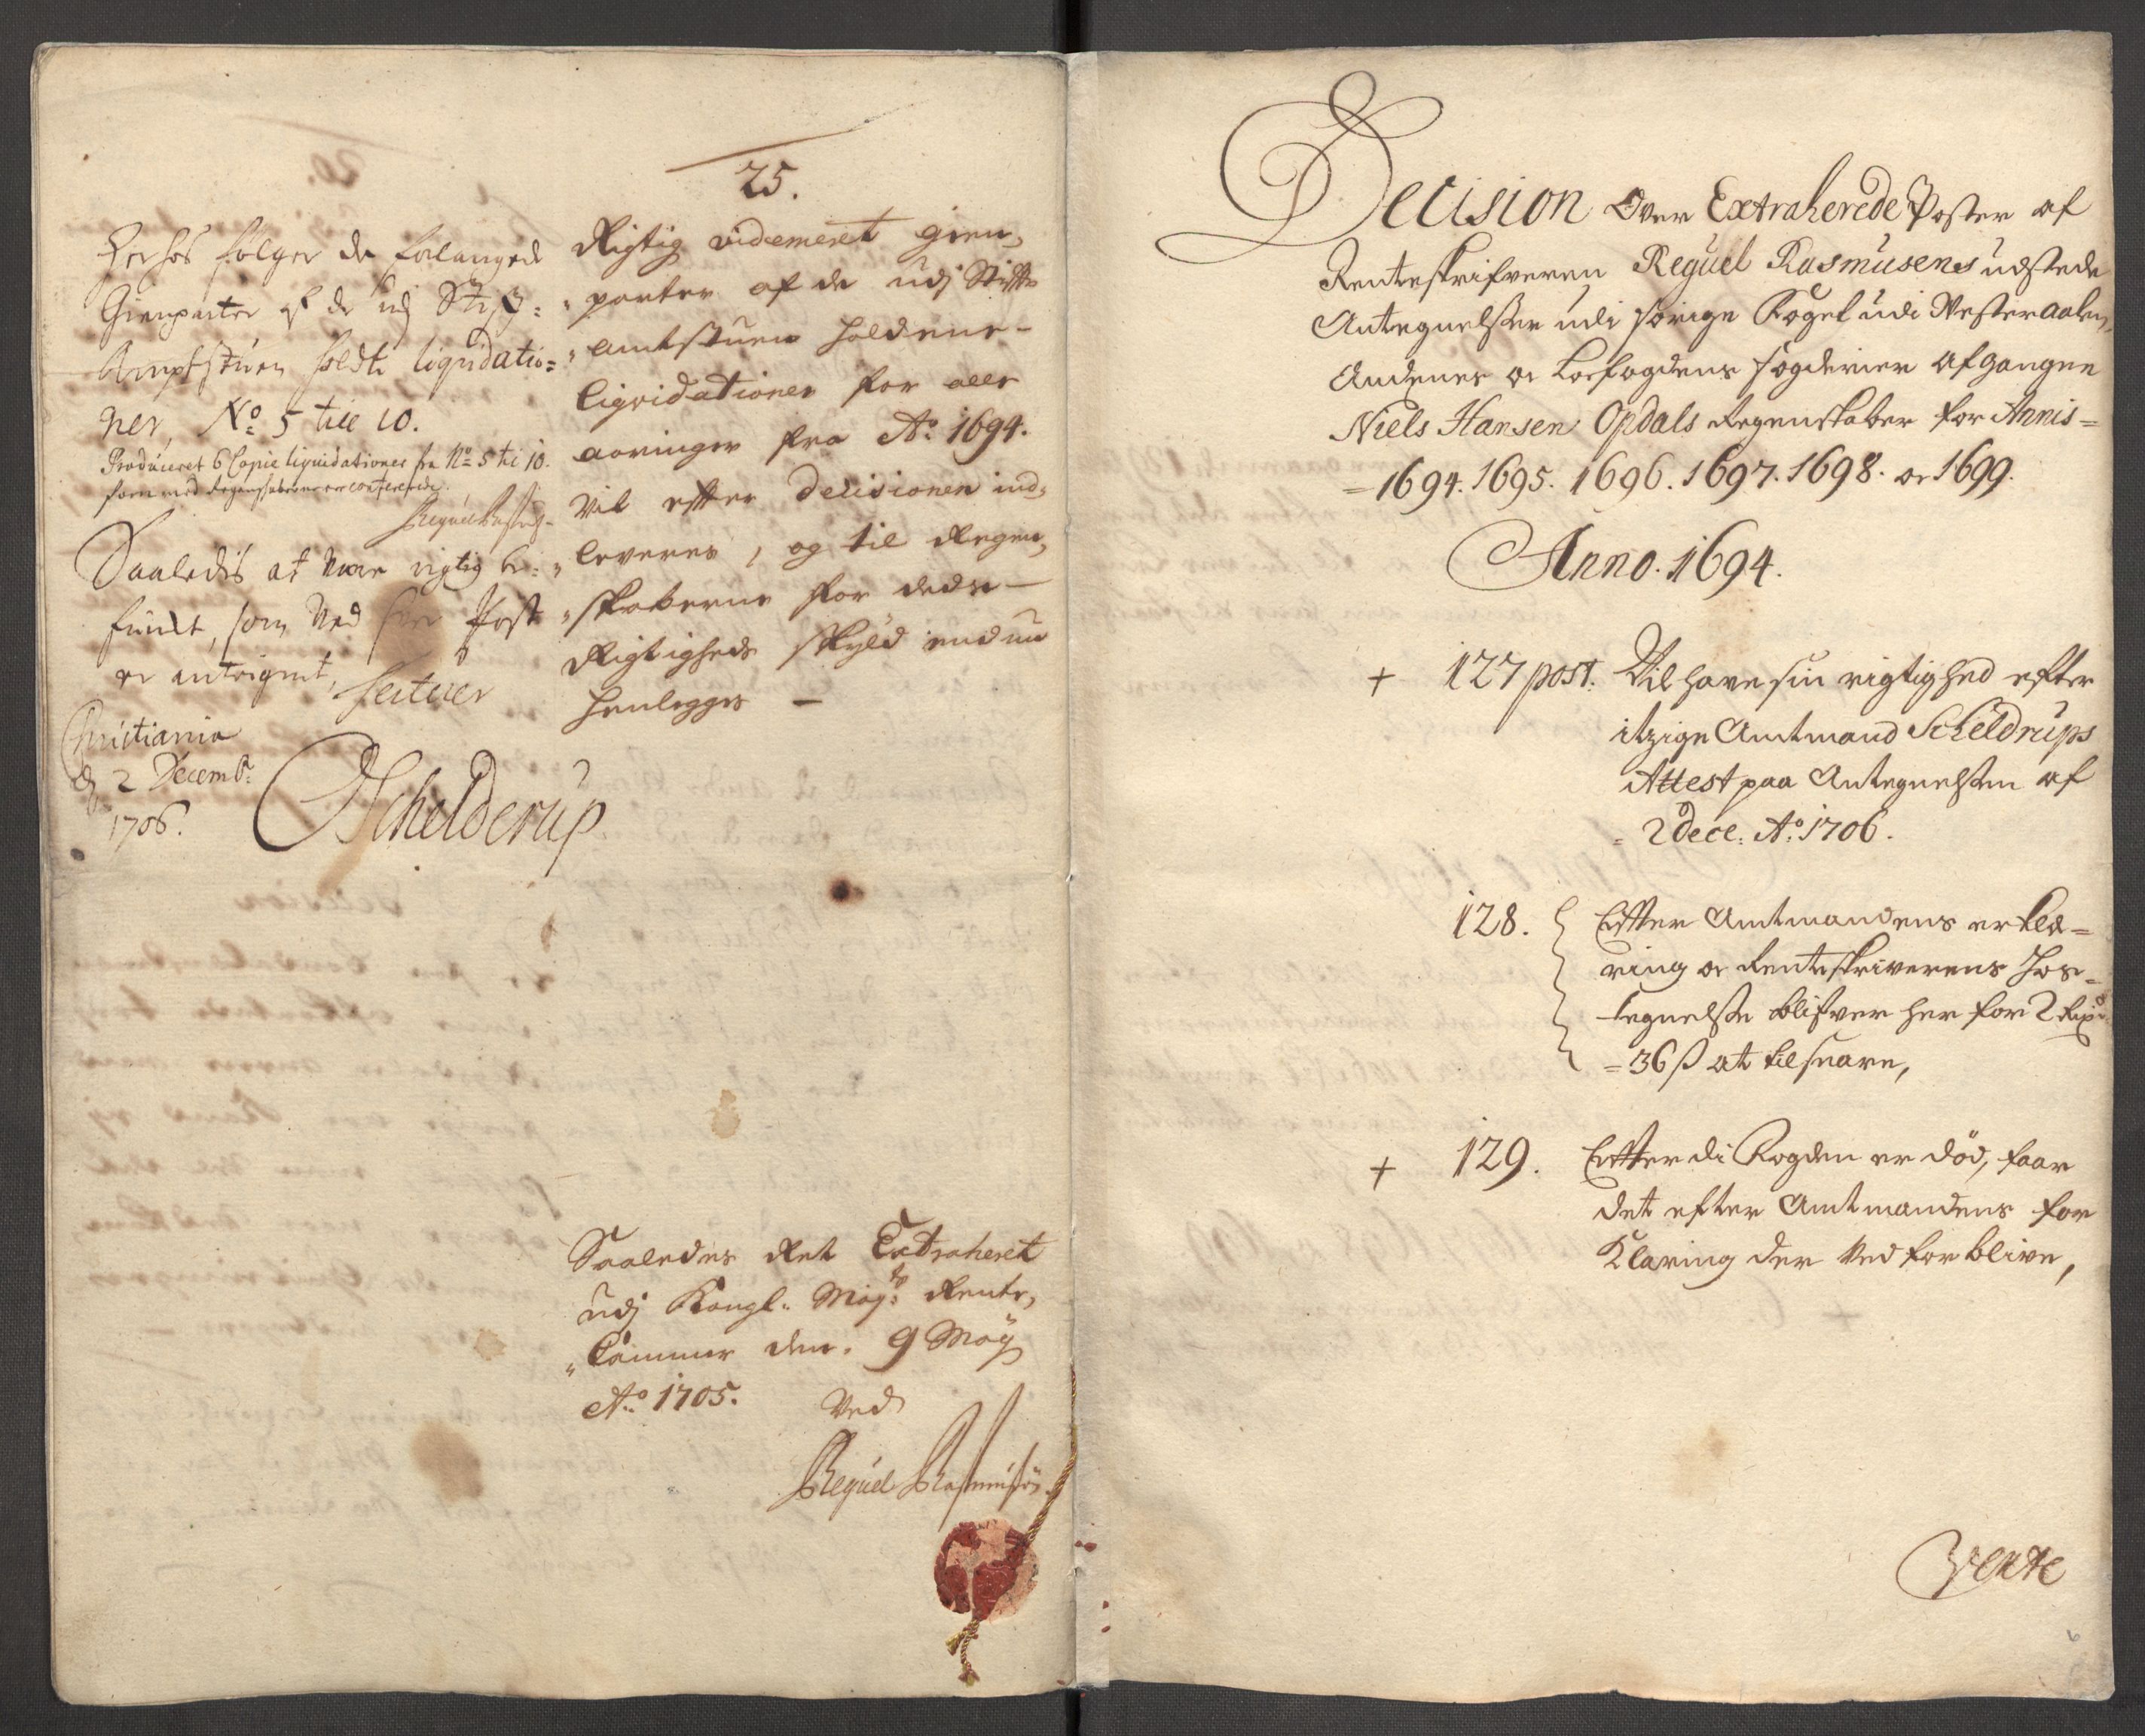 25.
Her hos følger de forlangede
Gienparter af de udj Stift=
Amptstuen holdte liquidatio=
ner, No 5 till 10.
Produceret 6 Copie liquidationer fra No 5 til 10.
som med Regenskaberne er confererede.
Saaledis at være rigtig be=
fundt, som Ved hver Post
er antegnet,
Christiania
d 2 Decembr:
1706.
Schelderup
Rigtig videmeret gien,
parter af de udj Stifts
amtstuen holdene
liqvidationer for alle
aaringer fra Ao 1694.
Vil efter Decisionen ind,
leveres, og til Regen,
skaberne for dends
Rigtigheds skyld endnu
henlegges —
Saaledes Ret Extraheret
udj Kongl. Mayts Rente,
Cammer den. 9 Maÿ
Ao 1705. Ved
Reqúel Rasmußøn.
Decision Over Extraherede Poster af
Renteskrifveren Reqúel Rasmúsens udstede
Antegnelser udi forige Foget udi Vesteraalen,
Andenes oc Lofogdens fogderier afgangne
Niels Hansen Opdals Regenskaber for Annis=
=1694. 1695. 1696. 1697. 1698. oc 1699.
Anno. 1694.
+ 127 post. Vil have sin rigtighed efter
itzige Amtmand Scheldrúps
Attest paa Antegnelsen af
2 Dece: Ao 1706.
128. Efter Amtmandens erklæ=
ring oc Renteskriverens Hos=
tegnelse blifver her for 2 Rixd
=36 ß at tilsvare,
+ 129. Efterdi Fogden er død, faar
det efter Amtmandens for
Klaring der Ved forblive,
Verte